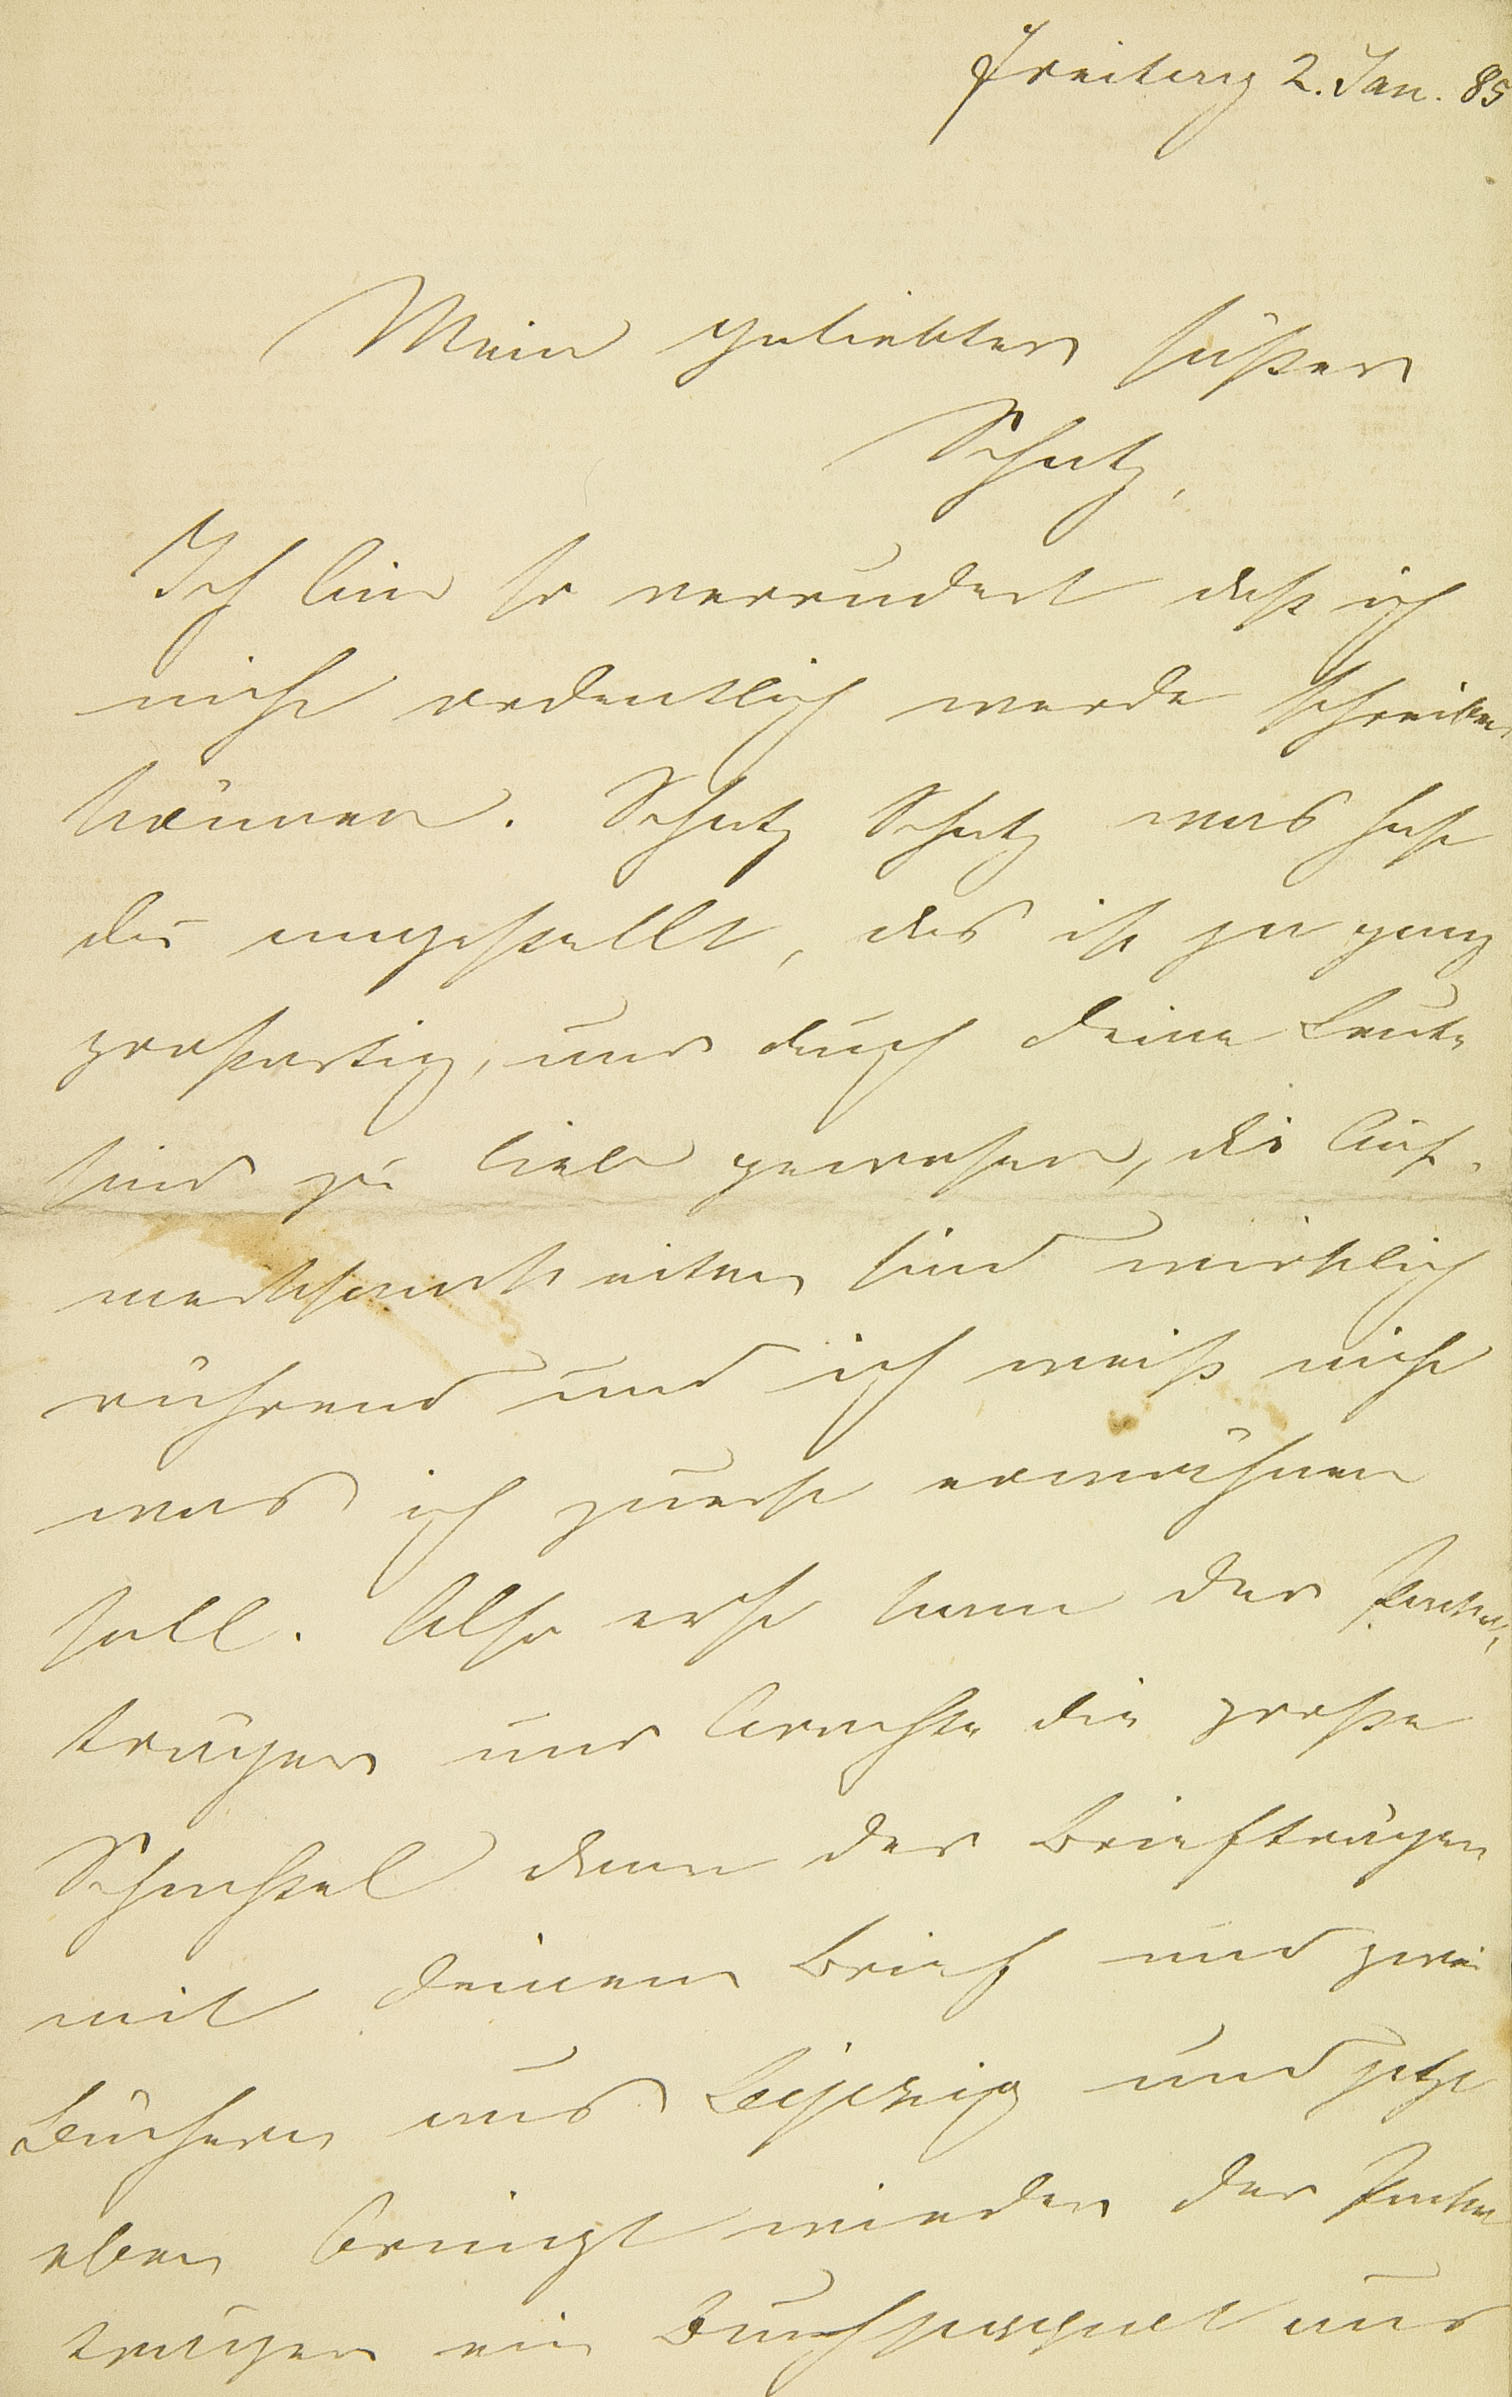 Freitag 2. Jan. 85
Mein geliebter süßer
Schatz,
Ich bin so verrudert daß ich
nicht ordentlich werde schreiben
können. Schatz Schatz was hast
du angestellt, das ist ja ganz
großartig, und auch deine Leute
sind zu lieb gewesen, die Auf-
merksamkeiten sind wirklich
rührend und ich weiß nicht
was ich zuerst erwähnen
soll. Also erst kam der Packet-
träger und brachte die große
Schachtel dann der Briefträger
mit deinem Brief und zwei
Büchern aus Leipzig und jetzt
eben bringt wieder der Packet
träger ein Buchpacquet und